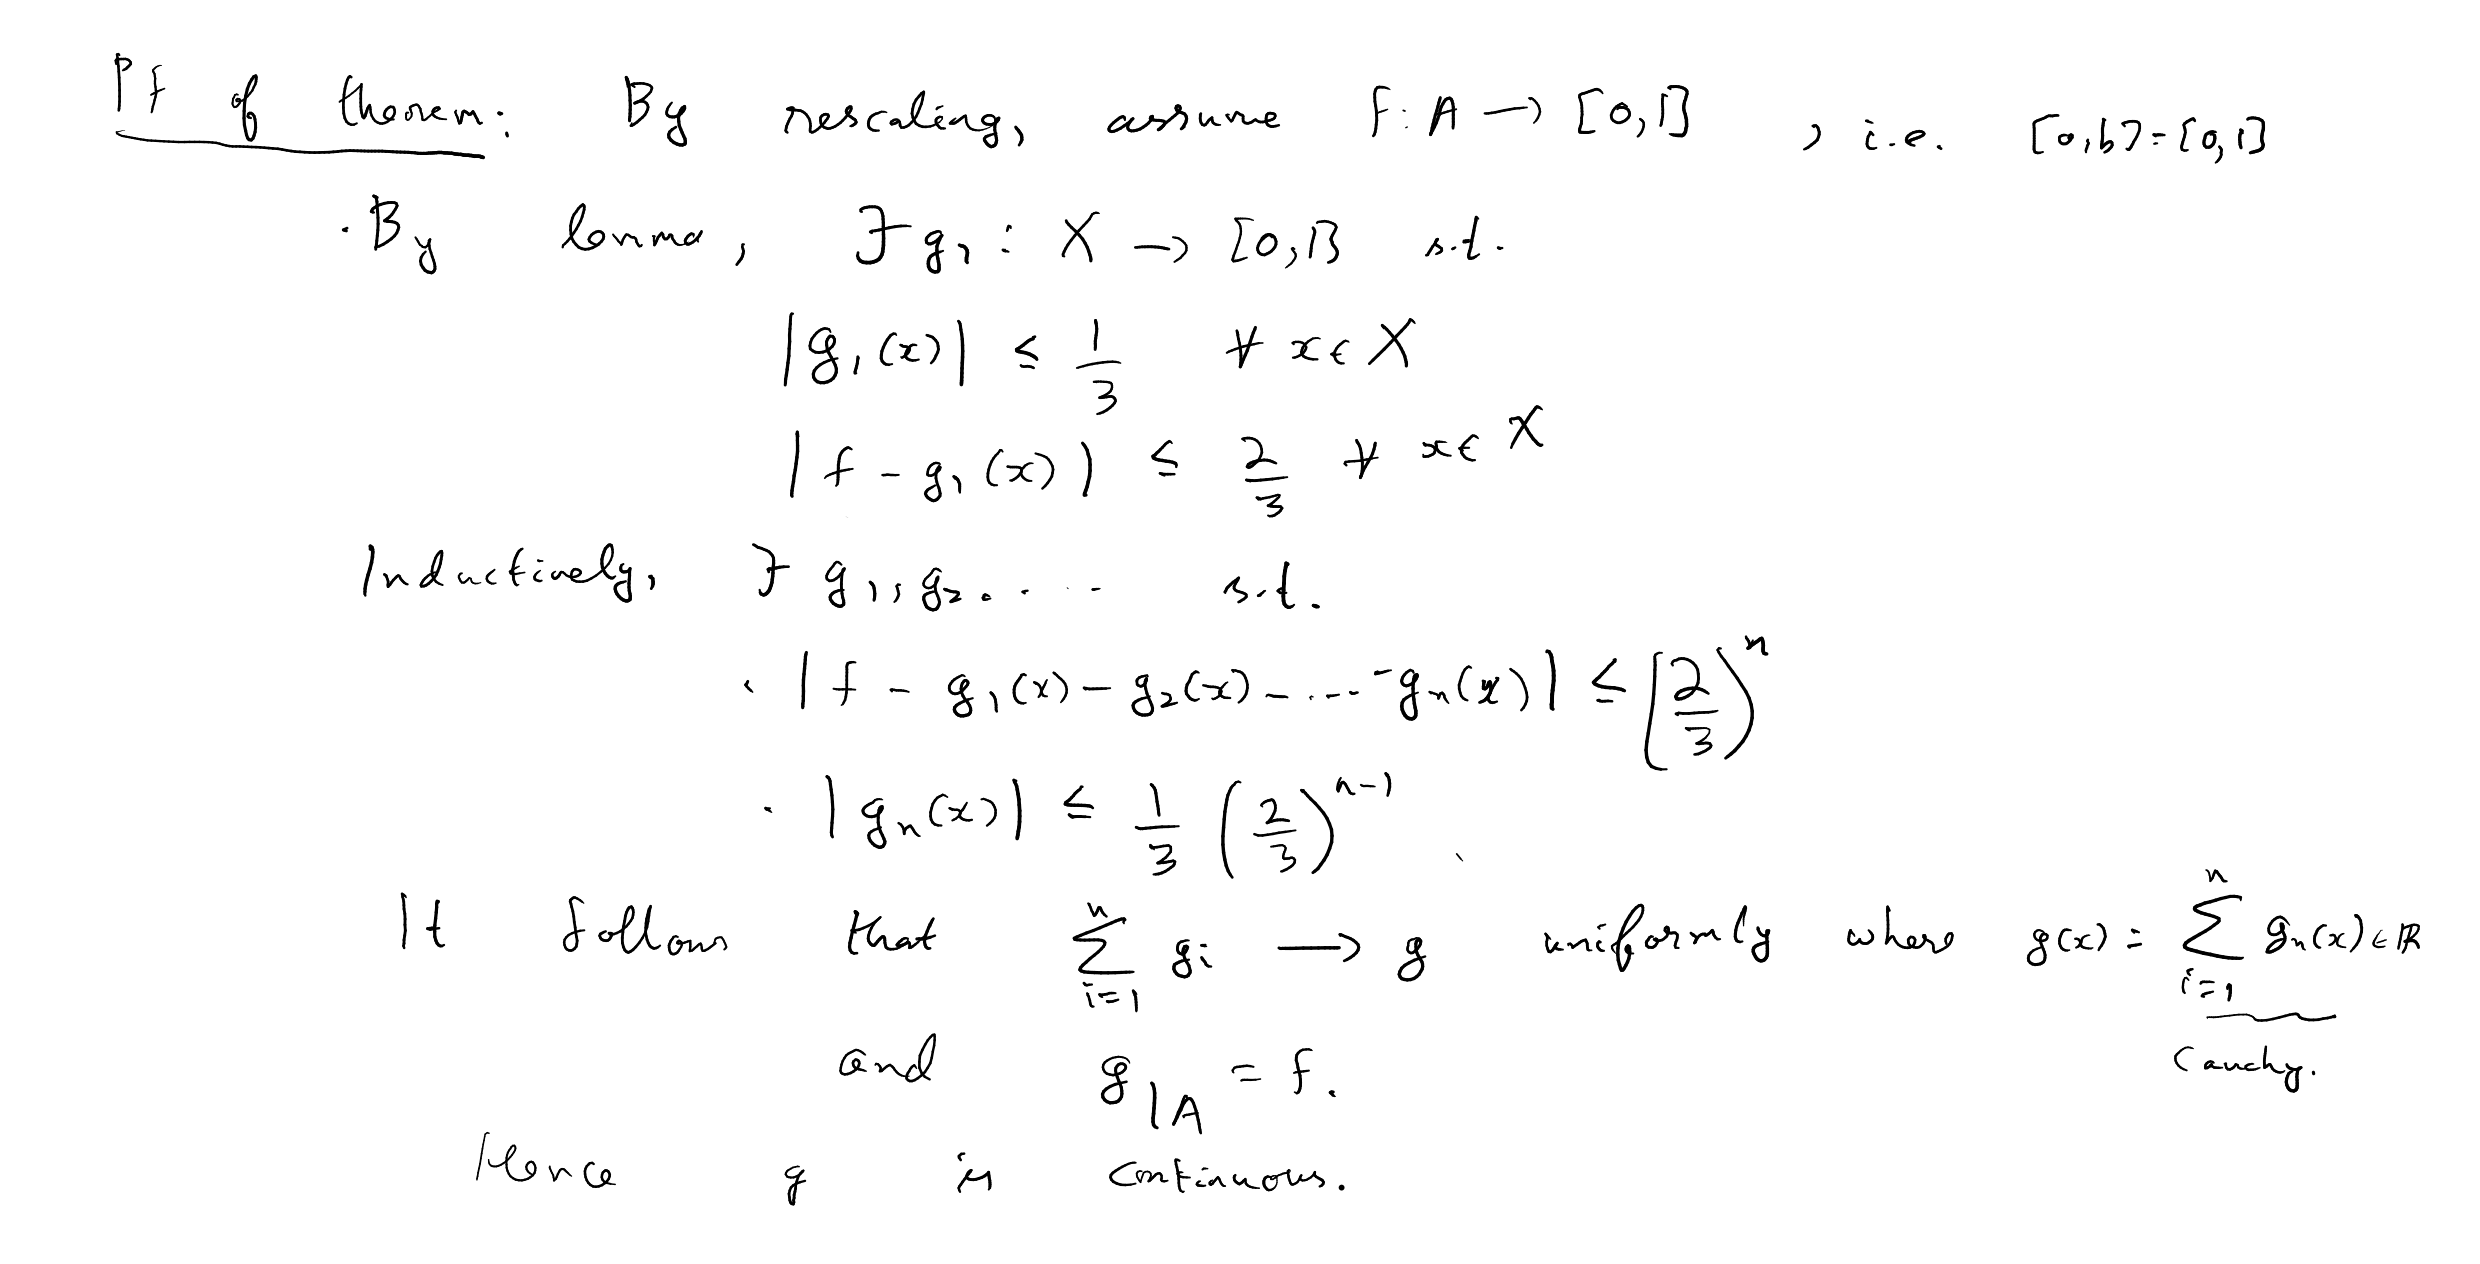 Pf of theorem: By rescaling, assume f: A → [0,1] , i.e. [a,b]=[0,1]
· By lemma, ∃ g₁ : X → [0,1] s.t.
|g₁(x)| ≤ 1/3 ∀ x∈X
|f - g₁(x)| ≤ 2/3 ∀ x∈X
Inductively, ∃ g₁, g₂..... s.t.
· |f - g₁(x) - g₂(x) - .... - gₙ(x)| ≤ (2/3)ⁿ
· |gₙ(x)| ≤ 1/3 (2/3)ⁿ⁻¹
It follows that ∑_{i=1}^{n} gᵢ → g uniformly where g(x) = ∑_{i=1}^{n} gₙ(x) ∈ ℝ
Cauchy.
and g|A = f.
Hence g is continuous.